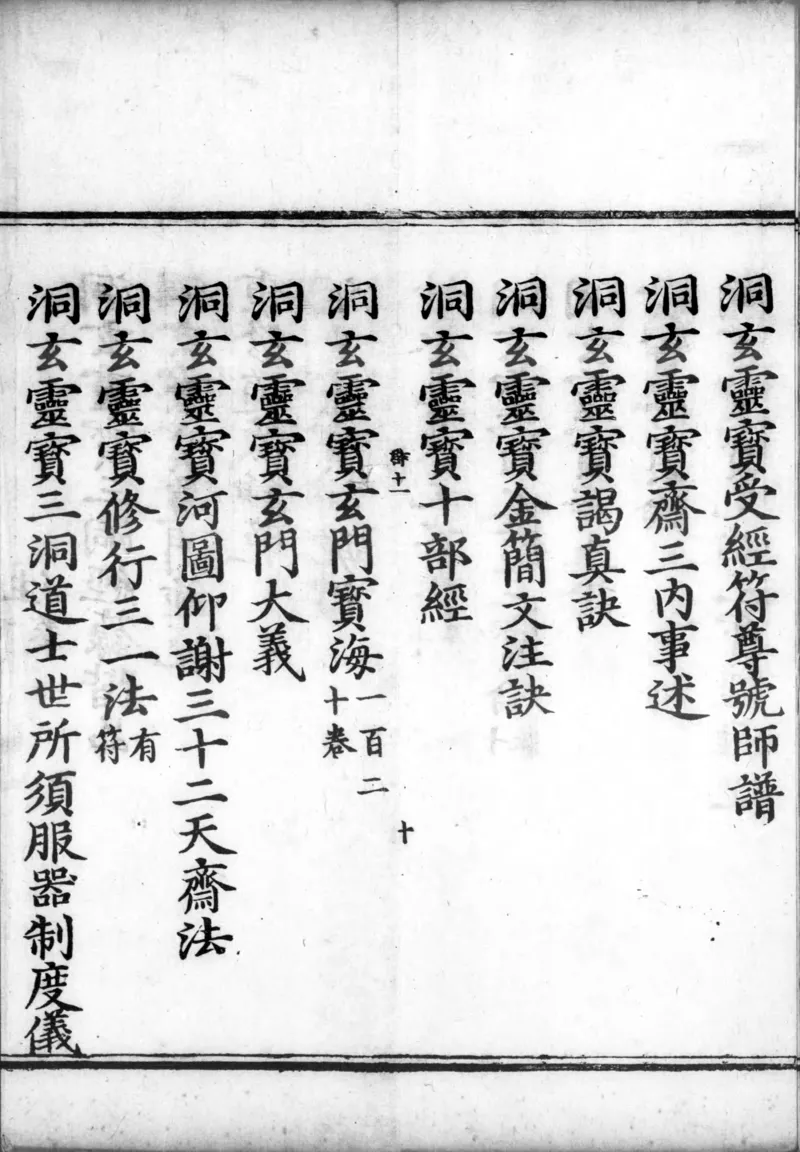 洞玄靈寶受經符尊號師譜
洞玄靈寶齋三內事述
洞玄靈寶謁真訣
洞玄靈寶金簡文注訣
洞玄靈寶十部經
十一
十
洞玄靈寶玄門寶海一百二十卷
洞玄靈寶玄門大義
洞玄靈寶河圖仰謝三十二天齋法
洞玄靈寶修行三一法有符
洞玄靈寶三洞道士世所須服器制度儀